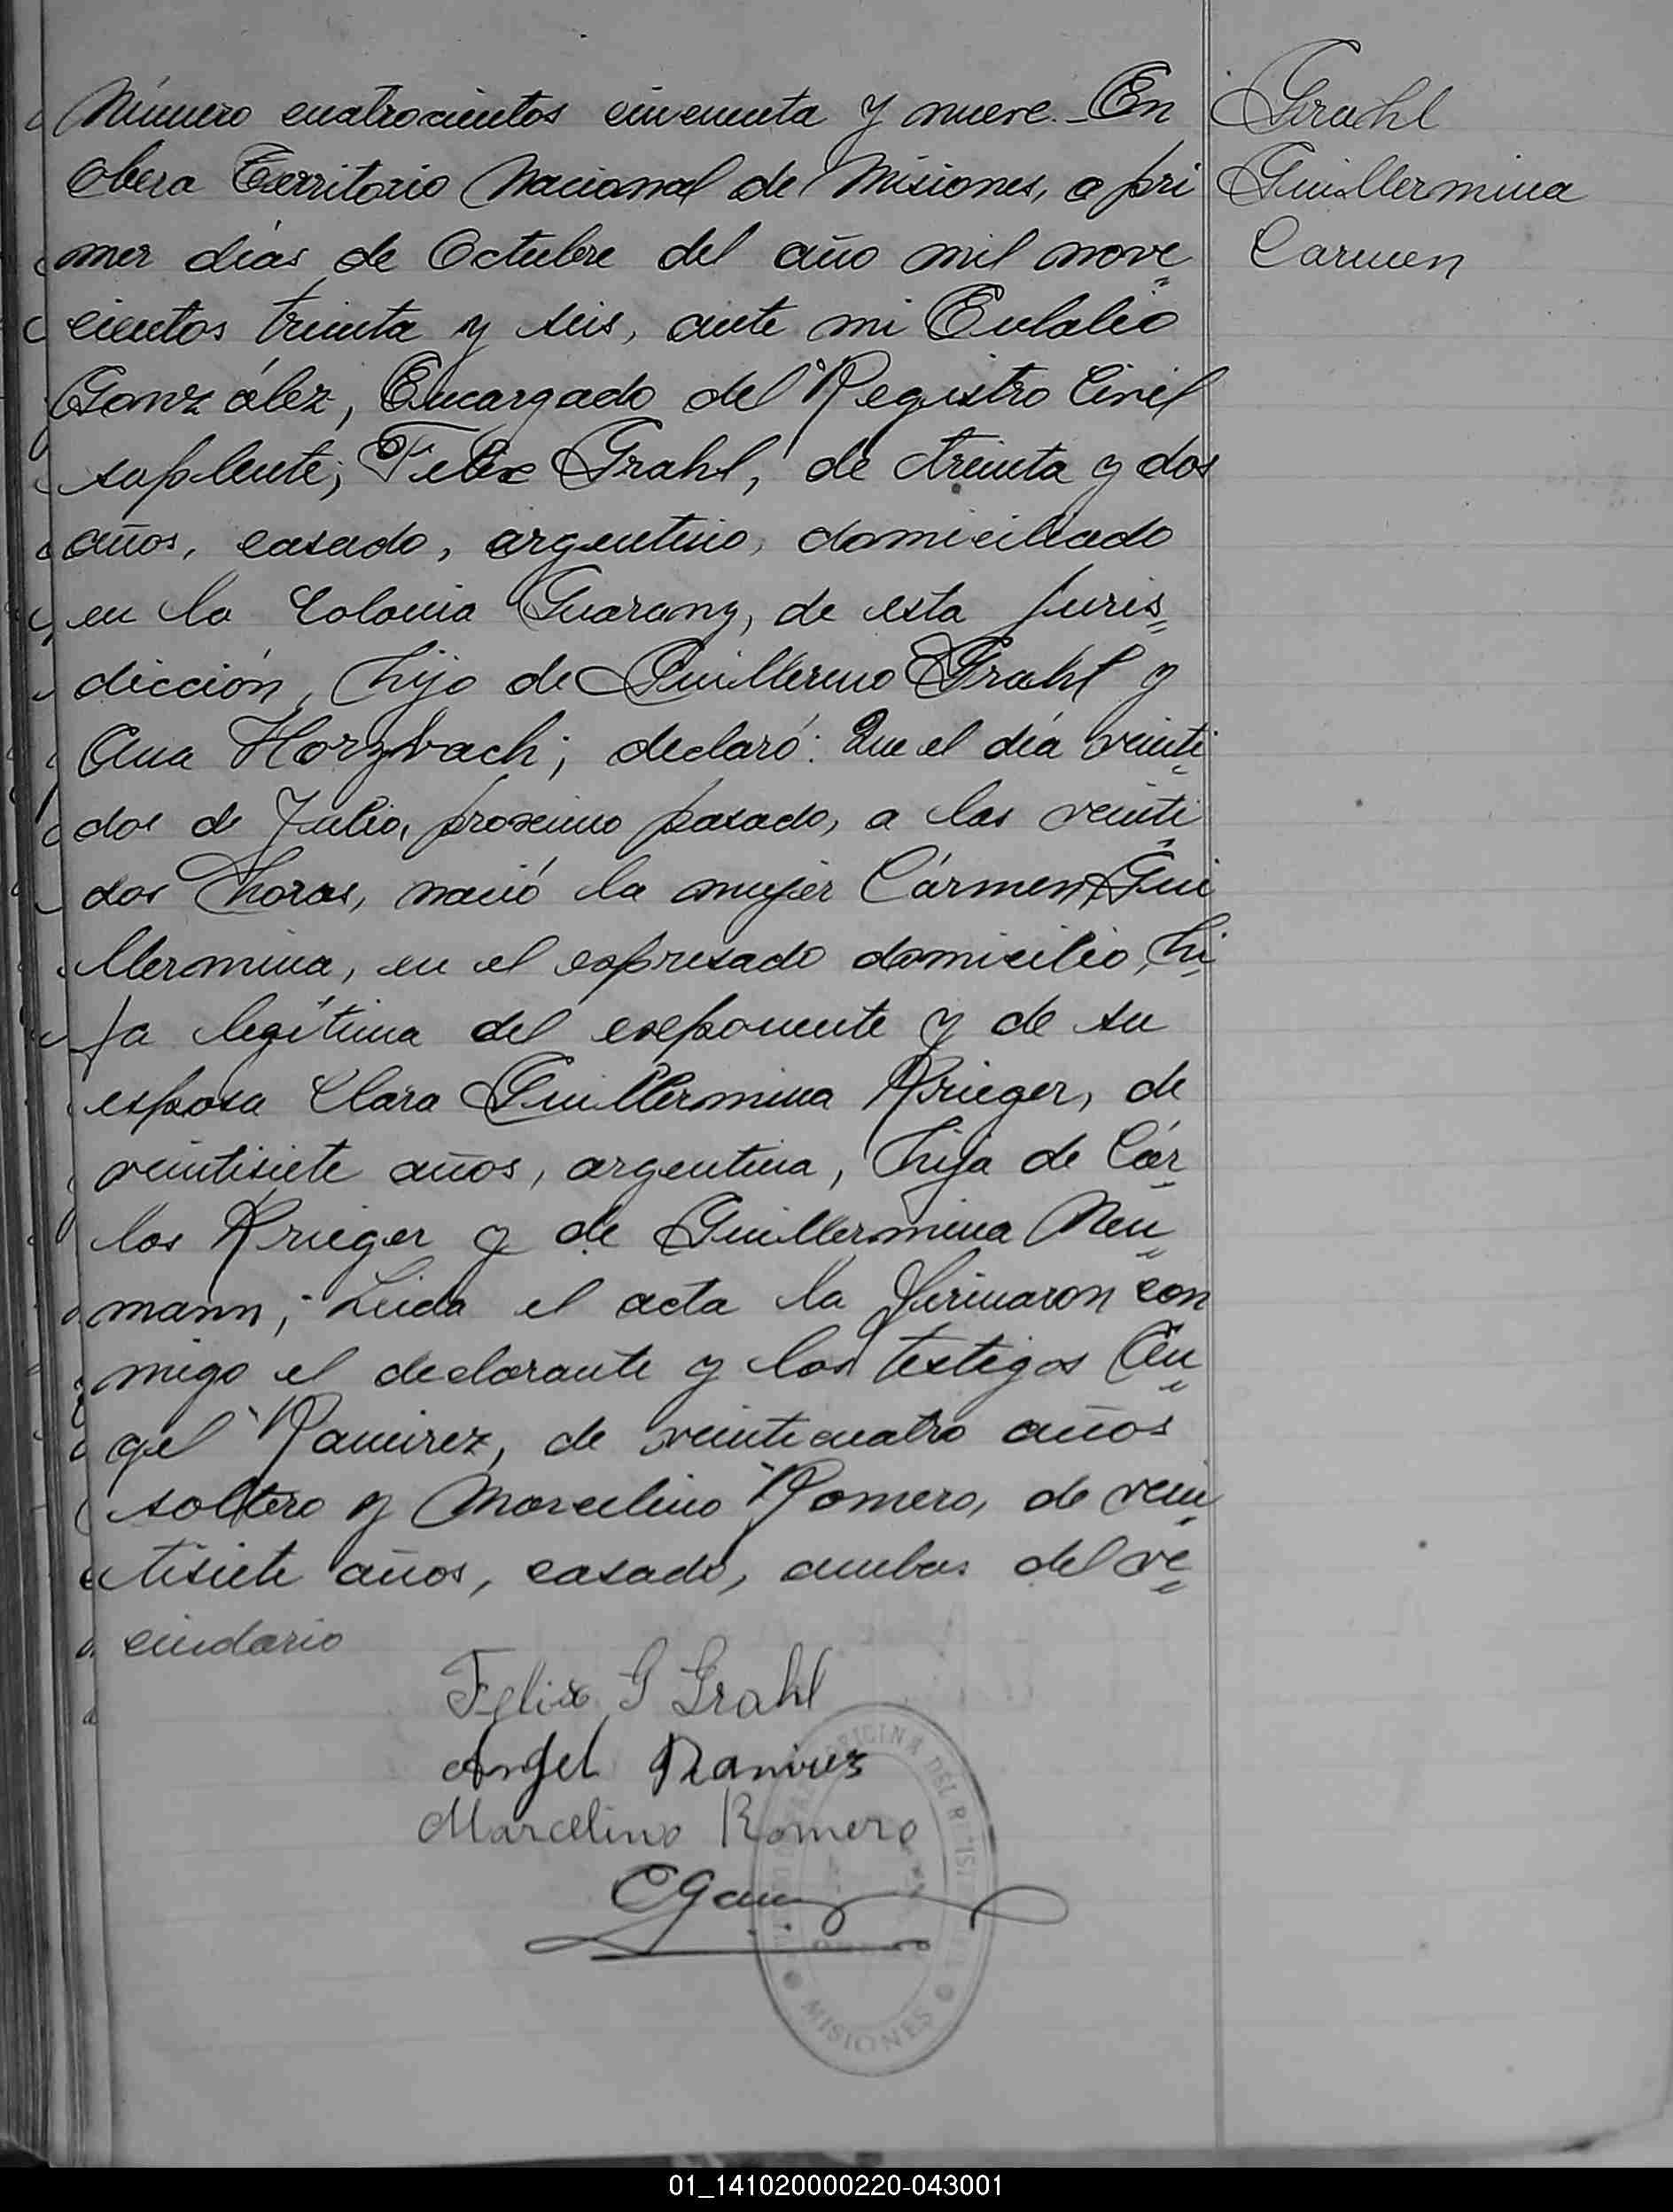 Número cuatrocientos cincuenta y nueve. En
Obera Territorio Nacional de Misiones, a pri
mer días de Octubre del año mil nove
cientos treinta y seis, ante mi Eulalio
González, Encargado del Registro Civil
suplente, Felix Grahl, de treinta y dos
años, casado, argentino, domiciliado
en la Colonia Guarany, de esta juris
dicción, hijo de Guillermo Grahl y
Ana Horzbach; declaró: Que el día veinti
dos de Julio, proximo pasado, a las veinti
dos horas, nació la mujer Cármen Gui
llermina, en el expresado domicilio, hi
ja legítima del exponente y de su
esposa Clara Guillermina Krieger, de
veintisiete años, argentina, hija de Cár
los Krieger y de Guillermina Neu
mann; Leida el acta la firmaron con
migo el declarante y los testigos An
gel Ramirez, de veinticuatro años
soltero y Marcelino Romero, de vein
tisiete años, casado, ambos del ve
cindario
Grahl
Guillermina
Carmen
Felix G Grahl
Angel Ramirez
Marcelino Romero
OFICINA DEL REGISTRO CIVIL
MISIONES
01_141020000220-043001